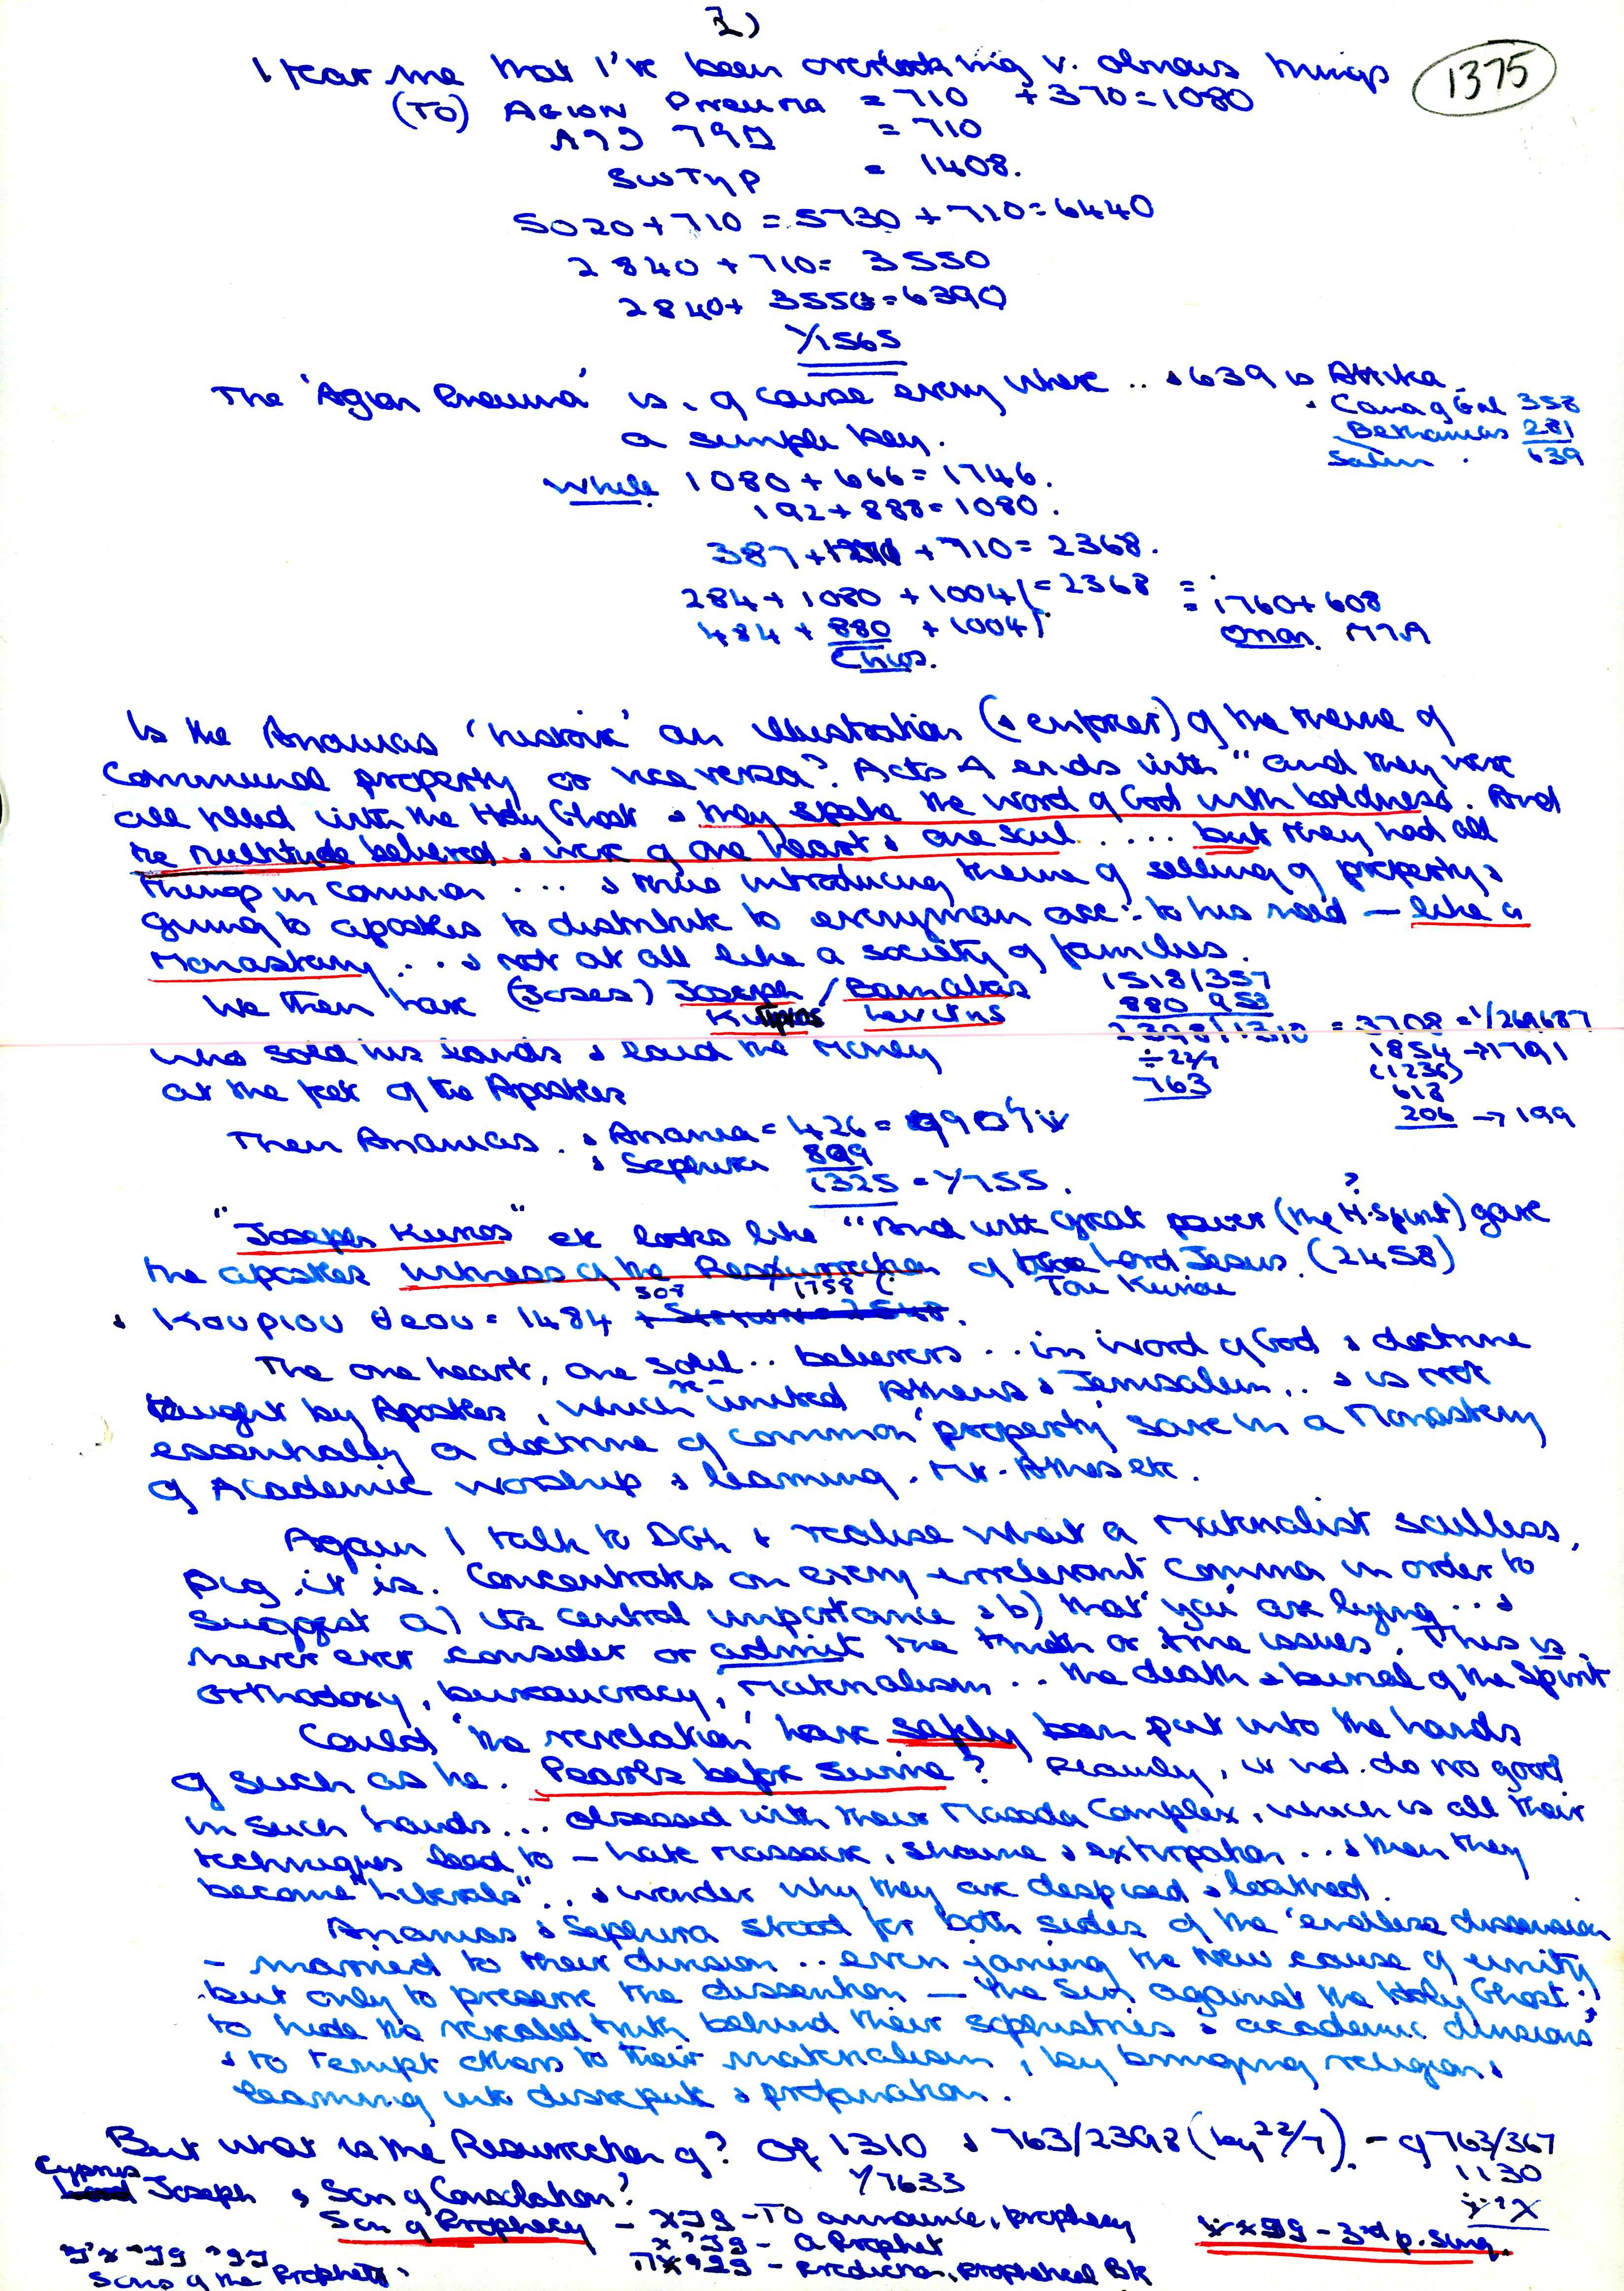 1)
1375
I fear me that I've been overlooking v. obvious things
(TO) AGION Pneuma = 710 + 370 = 1080
= 710
SwTηP = 1408.
5020 + 710 = 5730 + 710 = 6440
2840 + 710 = 3550
2840 + 3550 = 6390
Y/1565
The 'Agion Pneuma' is, of course every where .. & 639 is Attika
a simple key.
& Cana of Gal 358
Bethanias 281
639
While 1080 + 666 = 1746.
192 + 888 = 1080.
387 + 1271 + 710 = 2368.
284 + 1080 + 1004 = 2368 = 1760 + 608
484 + 880 + 1004
Chios.
Is the Ananias 'historie' an illustration of the theme of
communal property or vice versa? Acts 4 ends with "and they were
all filled with the Holy Ghost & they spake the word of God with boldness. And
the multitude believed & were of one heart & one soul .... but they had all
things in common ... & thus introducing theme of selling of property &
giving to apostles to distribute to everyman acc: to his need — like a
Monastery ... & not at all like a society of families.
We then have (Joses) Joseph / Barnabas 1518/357
Kupros Levitns 880 953
2398/1310 = 3708 = 1/269687
who sold his lands & laid the money ÷22/7 1854 → 1791
at the feet of the Apostles 763 (1236)
618
206 → 199
Then Ananias . & Anania = 426 =
& Sephira 899
1325 = Y/755.
"Joseph Kupros" etc looks like "And with great power (the H. Spirit) gave
?
the apostles witness of the Resurrection of the Lord Jesus. (2458)
507 1758 Tou Kuriou
& Kouριου θεου = 1484
The one heart, one soul .. believers .. in word of God & doctrine
taught by Apostles, which re-united Athens & Jerusalem .. & is not
essentially a doctrine of common 'property' save in a Monastery
of Academic worship & learning. Mt. Athos etc.
Again I talk to DGH & realise what a materialist soulless,
pig, it is. Concentrates on every irrelevant comma in order to
suggest a) its central importance & b) that 'you' are lying ... &
never ever consider or admit the truth or true issues. This is
Orthodoxy, bureaucracy, materialism .. the death & burial of the Spirit
Could 'the revelation' have safely been put into the hands
of such as he. Pearls before Swine? Clearly, it wd. do no good
in such hands... obsessed with their Masada Complex, which is all their
techniques lead to — hate massacre, shame & extirpation ... & then they
become "Liberals" .. & wonder why they are despised & loathed.
Ananias & Sephira stood for both sides of the 'endless dissension
- married to their division .. even joining the new cause of unity
but only to preserve the dissention — the Sin against the Holy Ghost;
to hide the revealed truth behind their sophistries & academic divisions'
& to tempt others to their materialism, by bringing religion &
learning into disrepute & profanation.
But what is the Resurrection of? Of 1310 & 763/2398 (by 22/7) - of 763/367
Y/7633 1130
Cyprus
Joseph & Son of Consolation?
Son of Prophecy - - To announce, prophecy - 3rd p. sing.
- a Prophet
Sons of the Prophets. - prediction, prophetical Bk